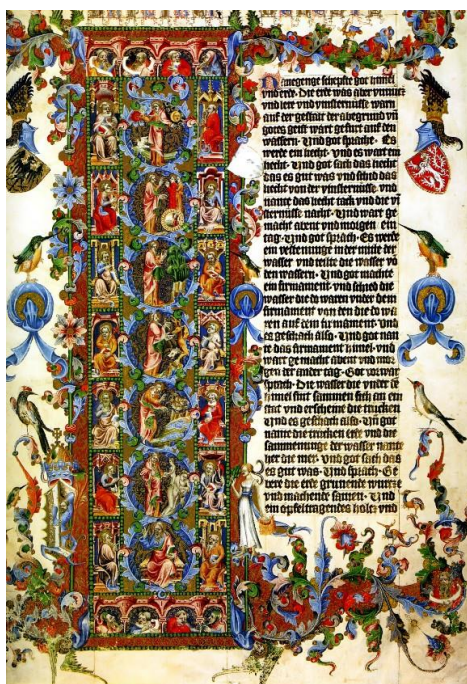 In anegenge schepfte got himel
vnd erde. Die erde was aber vnnutz
vnd lere vnd vinsternisse warn
auf der gestalt der abegrund vn
gotes geist wart gefurt auf den
wassern. Vnd got sprach. Es
werde ein liecht. vnd es wart ein
liecht. Vnd got sach das liecht
das es gut was vnd schid das
liecht von der vinsternisse. vnd
nante das liecht tack vnd die vi
sternusse nacht. Vnd wart ge
macht abent vnd morgen ein
tag. Vnd got sprach. Es werde
ein vestenunge in der mitte der
wasser vnd teilte die wasser vo
den wassern. Vnd got machte
ein firmament. vnd schied die
wasser die do waren vnder dem
firmament van den die do wa
ren auf dem firmament. vnd
es geschach also. Vnd got nan
te das firmament himel. vnd
wart gemacht abent vnd mor
gen der ander tag. Got
sprach. Die wasser die vnder de
himel sint sammen sich an ein
stat vnd erscheine die trucken
Vnd es geschach also. Vn got
nante die trucken erde vnd die
sammenunge der wasser nante
her die mer. vnd got sach das
es gut was. Vnd sprach. Ge
bere die erde grunende wurtze
vnd machende samen. Vnd
ein opfeltragendes holtz vnd